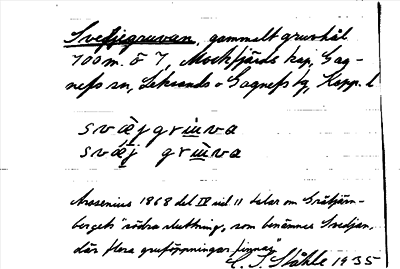 Svedjegruvan, gammalt gruvhål
700 m. ö 7, Mockfjärds kap, Gag-
nefs sn, Leksands o Gagnefs tg, Kopp. l
svæj grɯva
svæj grɯva
Arosenius 1868 del IV vid 11 talar om Gråtjärn-
bergets "södra sluttning, som benämnes Svedjan,
där flera gruföppningar finnas"
C. I. Ståhle 1935